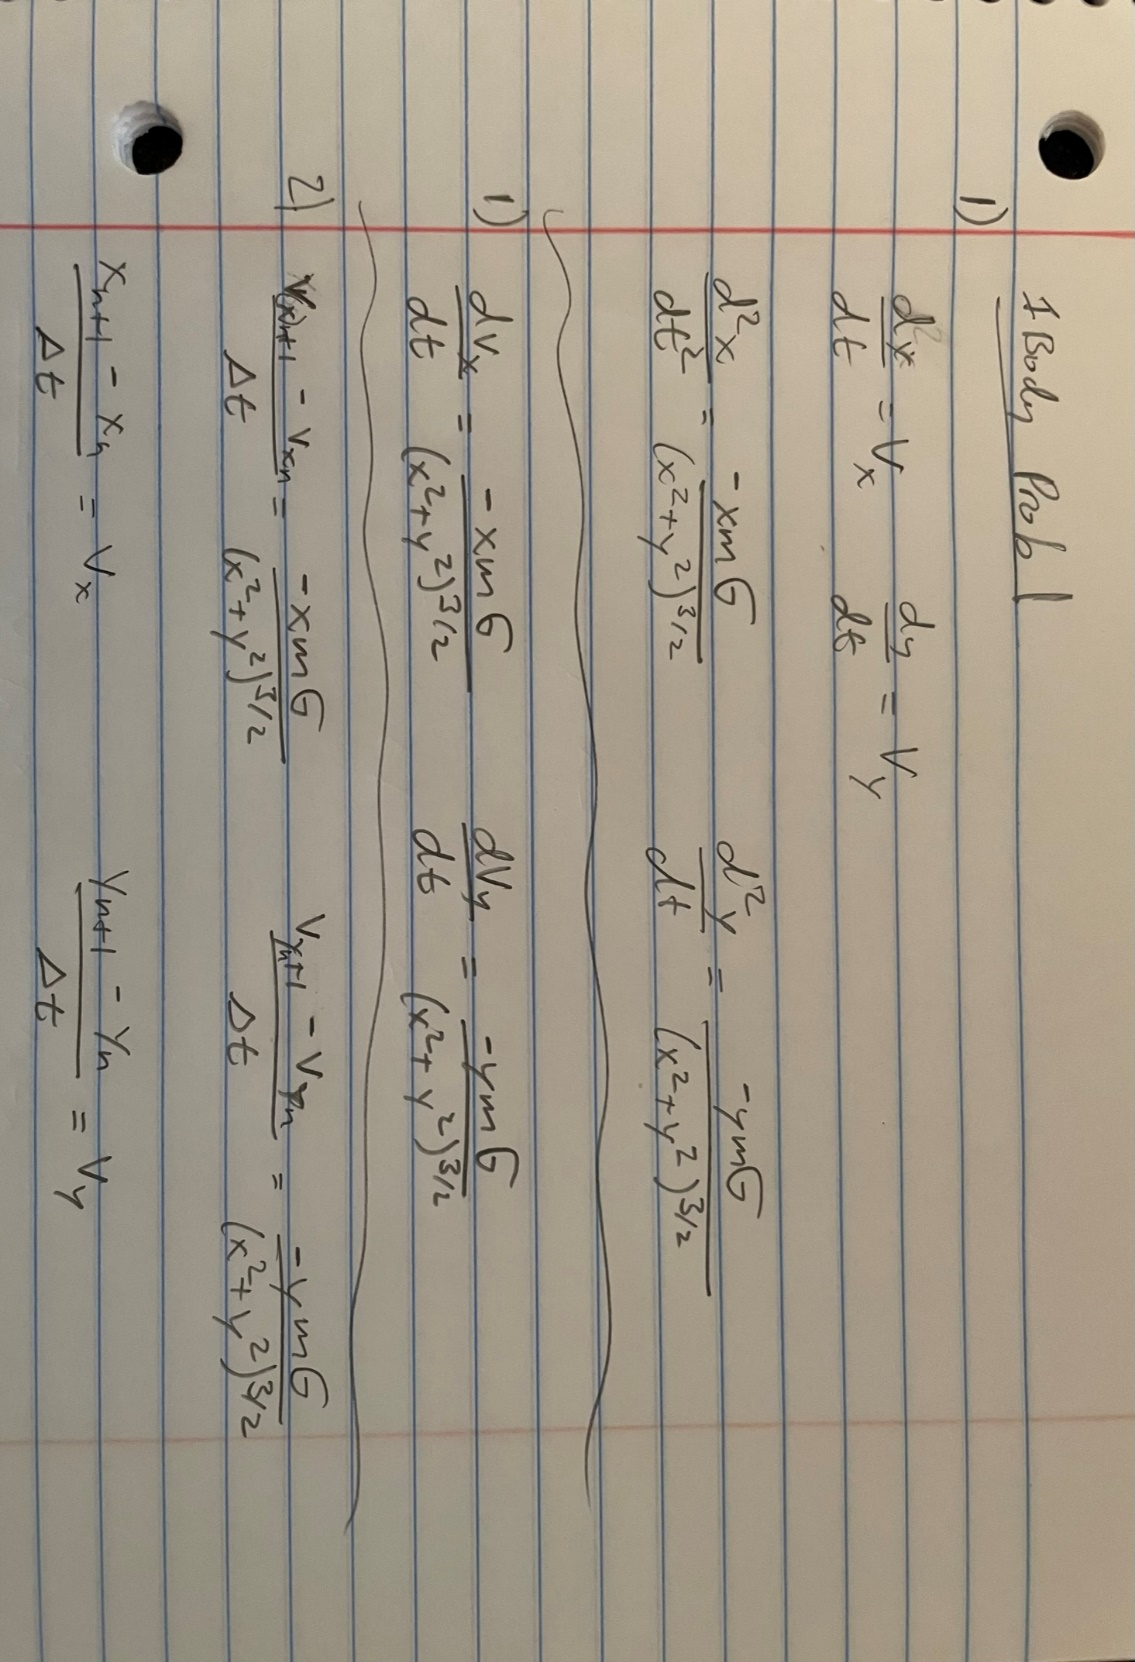 1 Body Prob
1) dx/dt = Vx dy/dt = Vy
d²x/dt² = -xmG/(x²+y²)^3/2 d²y/dt = -ymG/(x²+y²)^3/2
1) dVx/dt = -xmG/(x²+y²)^3/2 dVy/dt = -ymG/(x²+y²)^3/2
2) V(x)n+1 - Vxn/Δt = -xmG/(x²+y²)^3/2 Vyn+1 - Vyn/Δt = -ymG/(x²+y²)^3/2
xn+1 - xn/Δt = Vx yn+1 - yn/Δt = Vy